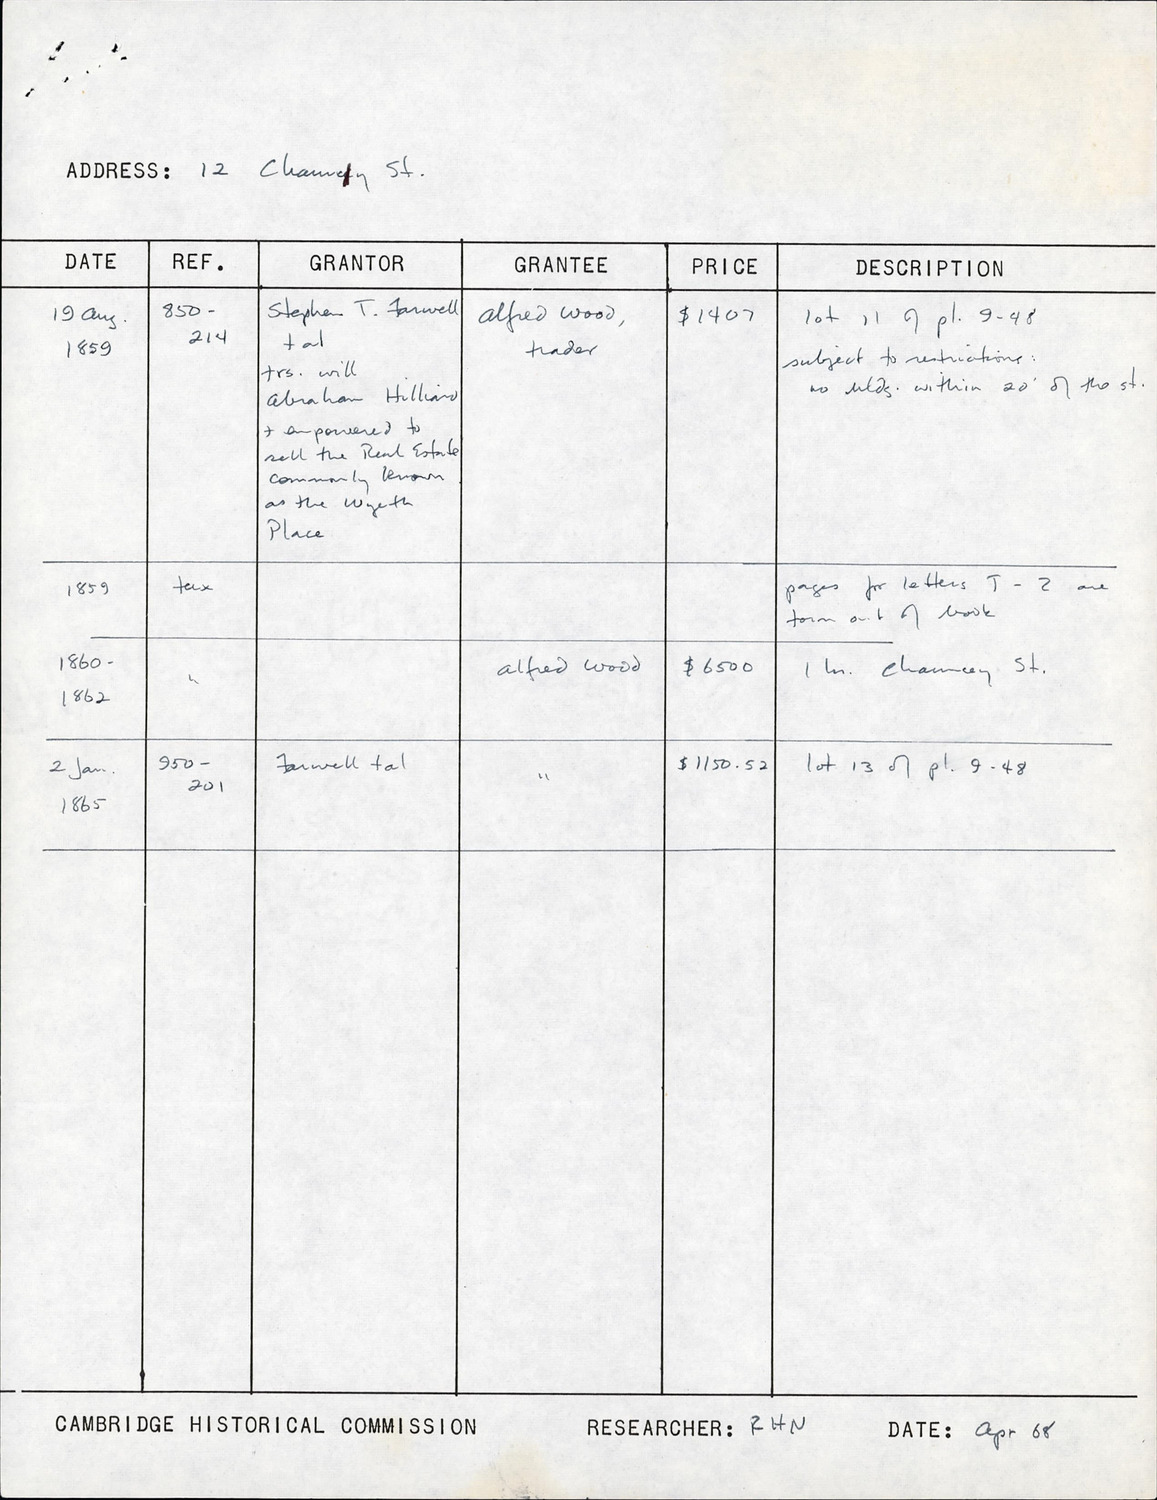 ADDRESS: 12 Chauncy St.
DATE REF. GRANTOR GRANTEE PRICE DESCRIPTION
19 Aug. 1859
850-214
Stephen T. Farwell
+ al
trs. will
Abraham Hilliard
+ empowered to
sell the Real Estate
commonly known
as the Wyeth
Place
Alfred Wood,
trader
$1407
lot 11 of pl. 9-48
subject to restrictions:
no bldg. within 20' of the st.
1859 tax
pages for letters T - Z are
torn out of book
1860-
1862
"
Alfred Wood
$6500
1 hs. Chauncey St.
2 Jan.
1865
950-
201
Farwell + al
"
$1150.52
lot 13 of pl. 9-48
CAMBRIDGE HISTORICAL COMMISSION RESEARCHER: RHN DATE: Apr 68